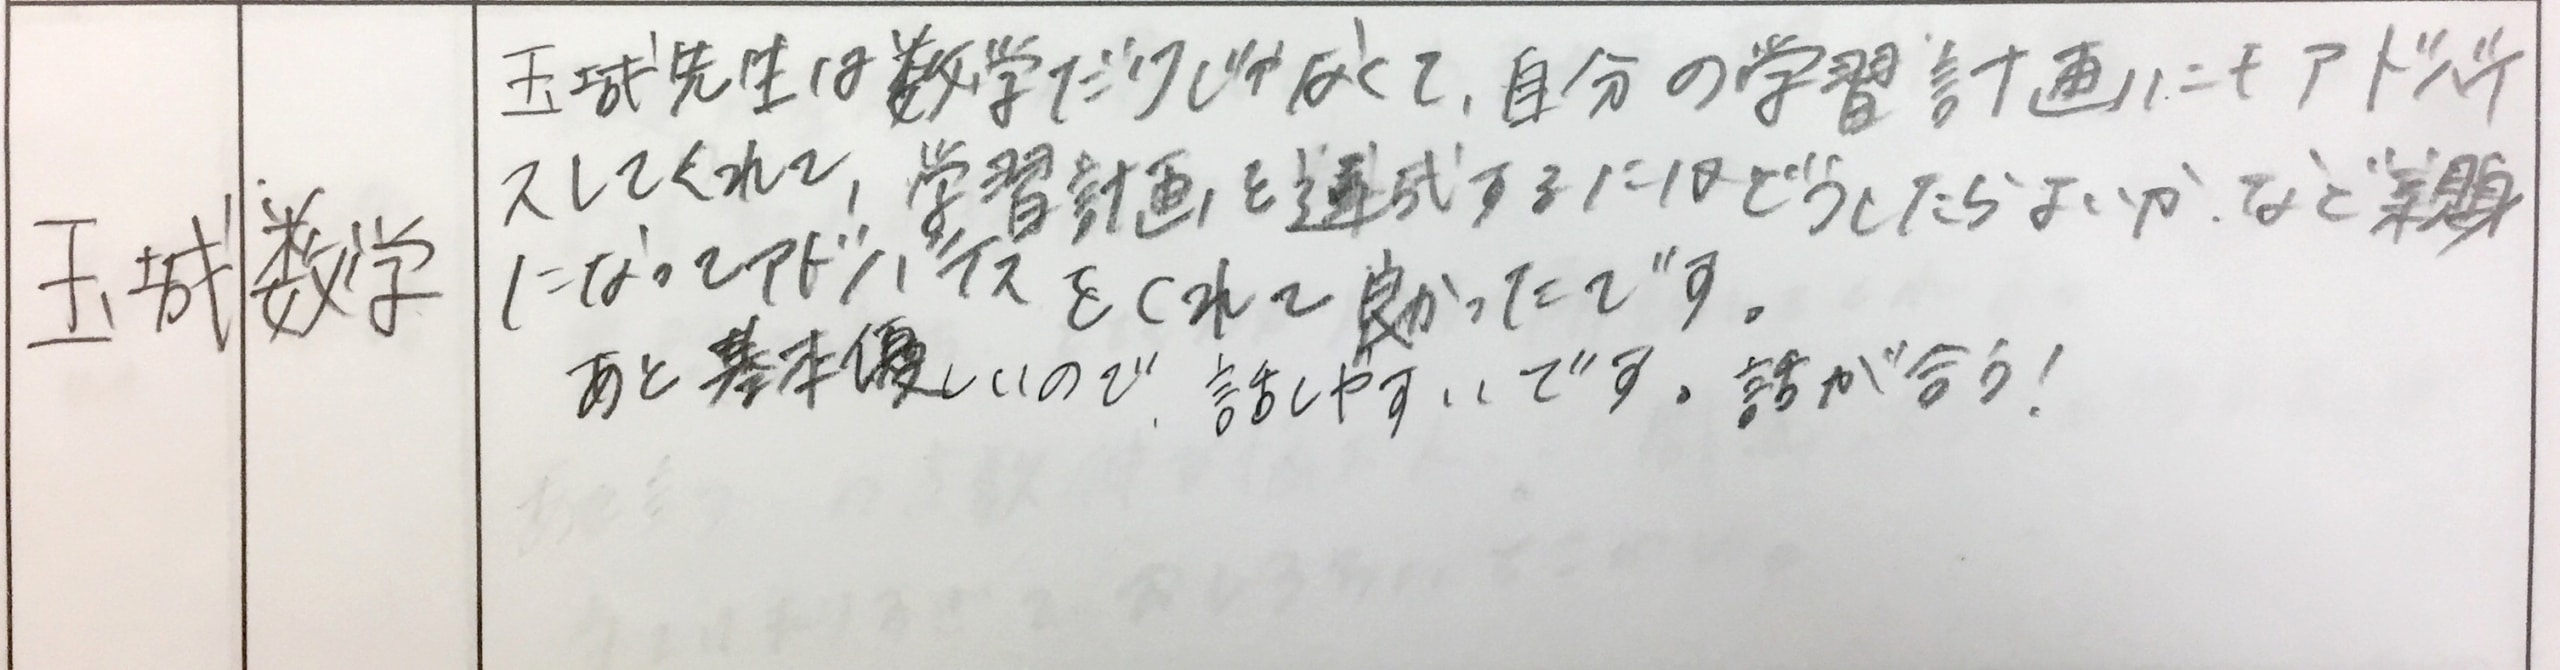 玉城
数学
玉城先生は数学だけじゃなくて、自分の学習計画にもアドバイ
スしてくれて、学習計画を達成するにはどうしたらよいか、など親身
になってアドバイスをくれて良かったです。
あと基本優しいので、話しやすいです。話が合う!